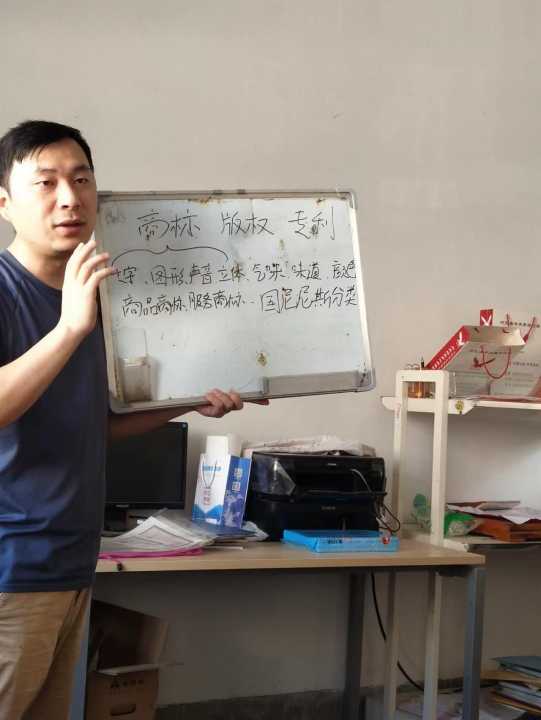 商标 版权 专利
文字、图形,声音,立体、气味、味道、颜色
商品商标、服务商标... 国尼尼斯分类